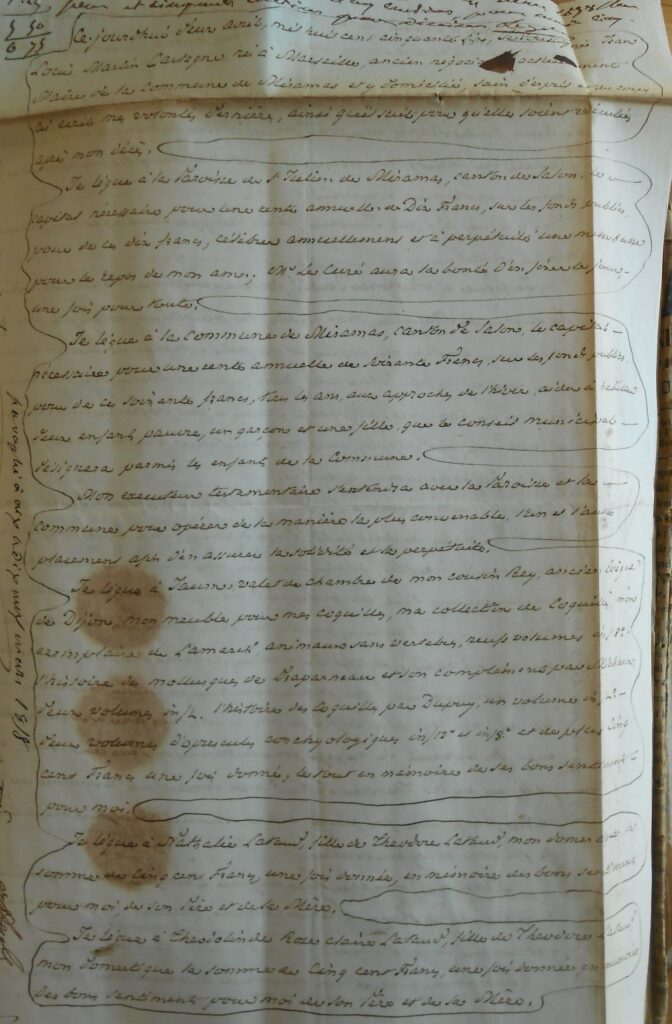 5 50
0 55
Ce jourd'hui deux avril, mil huit cent cinquante six, Jean
Louis Martin Castagne, né à Marseille, ancien
Maire de la Commune de Miramas et y domicilié, sain d'esprit et de corps
ai écrit mes volontés dernières, ainsi qu'il suit pour qu'elles soient exécutées
après mon décès.
Je lègue à la Paroisse de St Julien de Miramas, canton de Salon, le
capital nécessaire pour une rente annuelle de Dix Francs, sur les fonds publics,
pour de ces dix francs, célébrer annuellement et à perpétuité une
pour le repos de mon ame; Mr Le Curé aura la bonté d'en fixer le jour
une fois pour toute.
Je lègue à la Commune de Miramas, canton de Salon, le capital
nécessaire pour une rente annuelle de soixante Francs, sur les fonds publics
pour de ces soixante francs, tous les ans, aux approches de l'hiver, aider à
deux enfans pauvres, un garçon et une fille, que le conseil municipal
désignera parmi les enfans de la Commune.
Mon executeur testamentaire s'entendra avec la Paroisse et la
Commune pour opérer de la manière la plus convenable, l'un et l'autre
placemens afin d'en assurer la solidité et la perpétuité.
Je lègue à Jaume, valet de chambre de mon cousin Rey, ancien Evêque
de Dijon, mon meuble pour mes coquilles, ma collection de Coquilles, mon
exemplaire de Lamarck animaux sans vertèbres, volumes in/8°
l'histoire de mollusques de Draparneau et son complément par Michaux
deux volumes in/4. l'histoire des Coquilles par Dupuy, un volume in/4
deux volumes d'opuscules conchyologiques in/12° et in/8° et de plus Cinq
cens Francs une fois donné; le tout en mémoire de ses bons sentimens
pour moi.
Je lègue à Nathalie fille de Theodore mon domestique la
somme de Cinq cens Francs, une fois donnée, en mémoire des bons sentimens
pour moi, de son Père et de sa Mère.
Je lègue à Theodolinde Roze Claire fille de Theodore
mon domestique la somme de Cinq cent Francs, une fois donnée, en mémoire
des bons sentiments pour moi de son Père et de sa Mère.